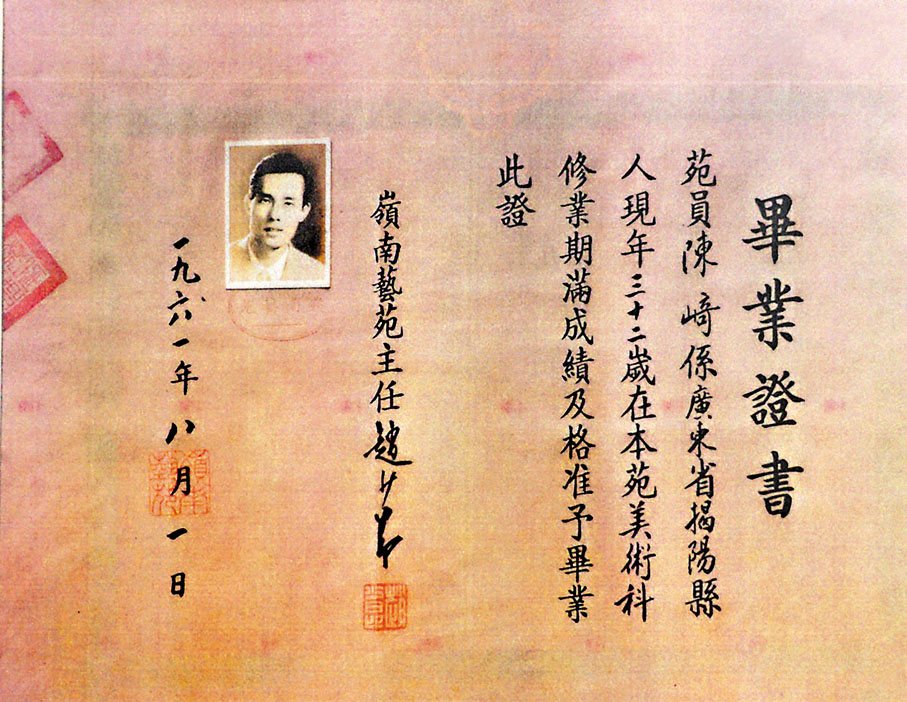 畢業證書
苑員陳崎係廣東省揭陽縣
人現年三十二歲在本苑美術科
修業期滿成績及格准予畢業
此證
嶺南藝苑主任趙少昂
一九六一年八月一日